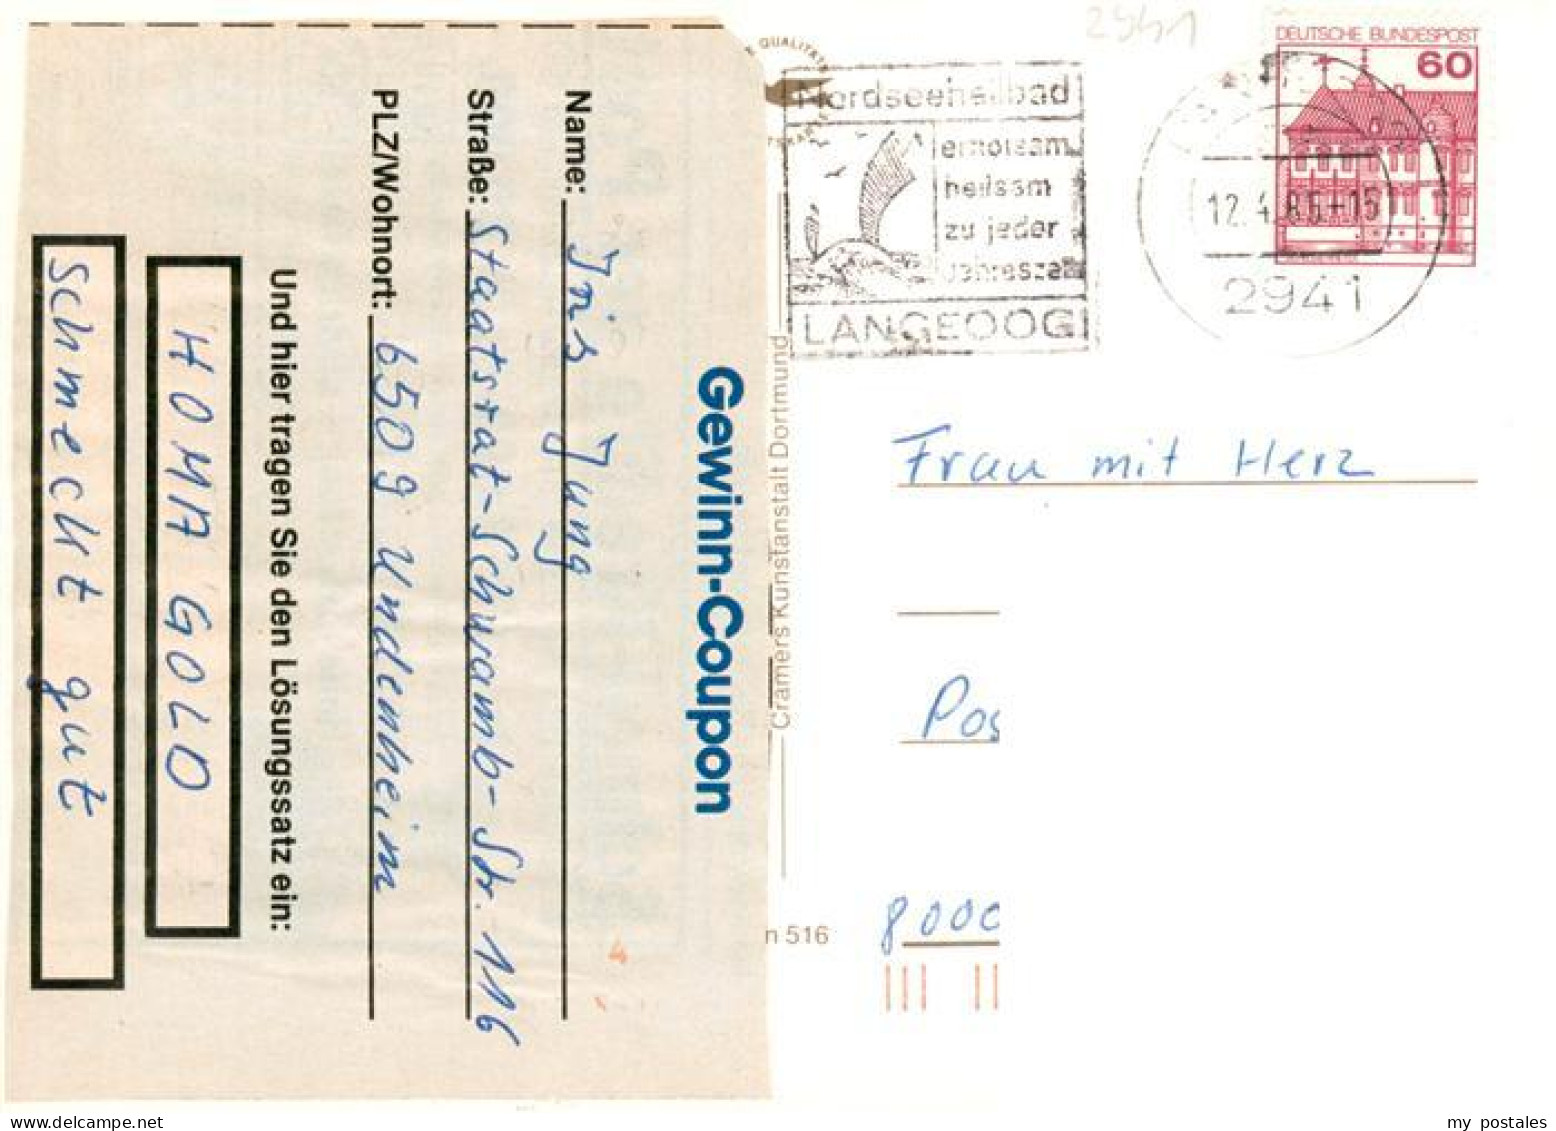 Gewinn-Coupon
Name: Iris Jung
Straße: Staatsrat-Schwamb-Str. 116
PLZ/Wohnort: 6509 Undenheim
Und hier tragen Sie den Lösungssatz ein:
HOMA GOLD
schmeckt gut
QUALITÄTS
Cramers Kunstanstalt Dortmund
n 516
2941
Nordseeheilbad
erholsam
heilsam
zu jeder
Jahresze
LANGEOOG
DEUTSCHE BUNDESPOST
60
12.4.85-15
2941
Frau mit Herz
Pos
8000
my postales